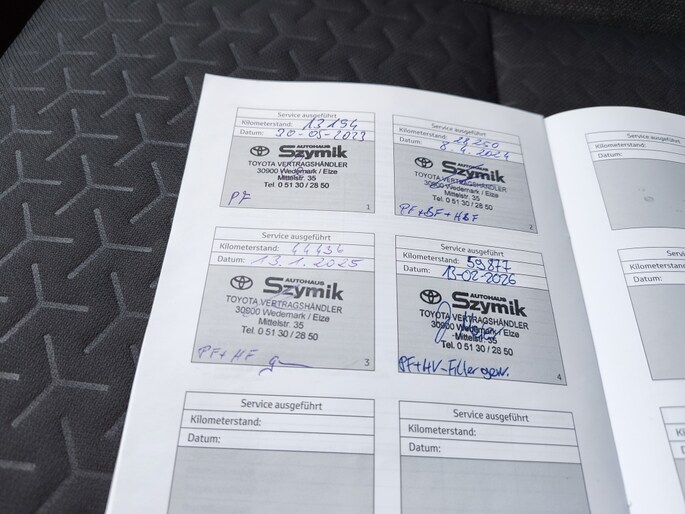 Service ausgeführt
Kilometerstand: 13194
Datum: 30-05-2023
AUTOHAUS
Szymik
TOYOTA VERTRAGSHÄNDLER
30900 Wedemark / Elze
Mittelstr. 35
Tel. 0 51 30 / 28 50
PF
1
Service ausgeführt
Kilometerstand: 28250
Datum: 8.4.2024
AUTOHAUS
Szymik
TOYOTA VERTRAGSHÄNDLER
30900 Wedemark / Elze
Mittelstr. 35
Tel. 0 51 30 / 28 50
PF+BF+HBF
2
Service ausgeführt
Kilometerstand: 44436
Datum: 13.1.2025
AUTOHAUS
Szymik
TOYOTA VERTRAGSHÄNDLER
30900 Wedemark / Elze
Mittelstr. 35
Tel. 0 51 30 / 28 50
PF+HF
3
Service ausgeführt
Kilometerstand: 59877
Datum: 13-02-2026
AUTOHAUS
Szymik
TOYOTA VERTRAGSHÄNDLER
30900 Wedemark / Elze
Mittelstr. 35
Tel. 0 51 30 / 28 50
PF+HV-Filter gew.
4
Service ausgeführt
Kilometerstand:
Datum:
Service ausgeführt
Kilometerstand:
Datum:
Service
Kilometerstand
Datum:
Service
Kilometerstand
Datum:
Datum: